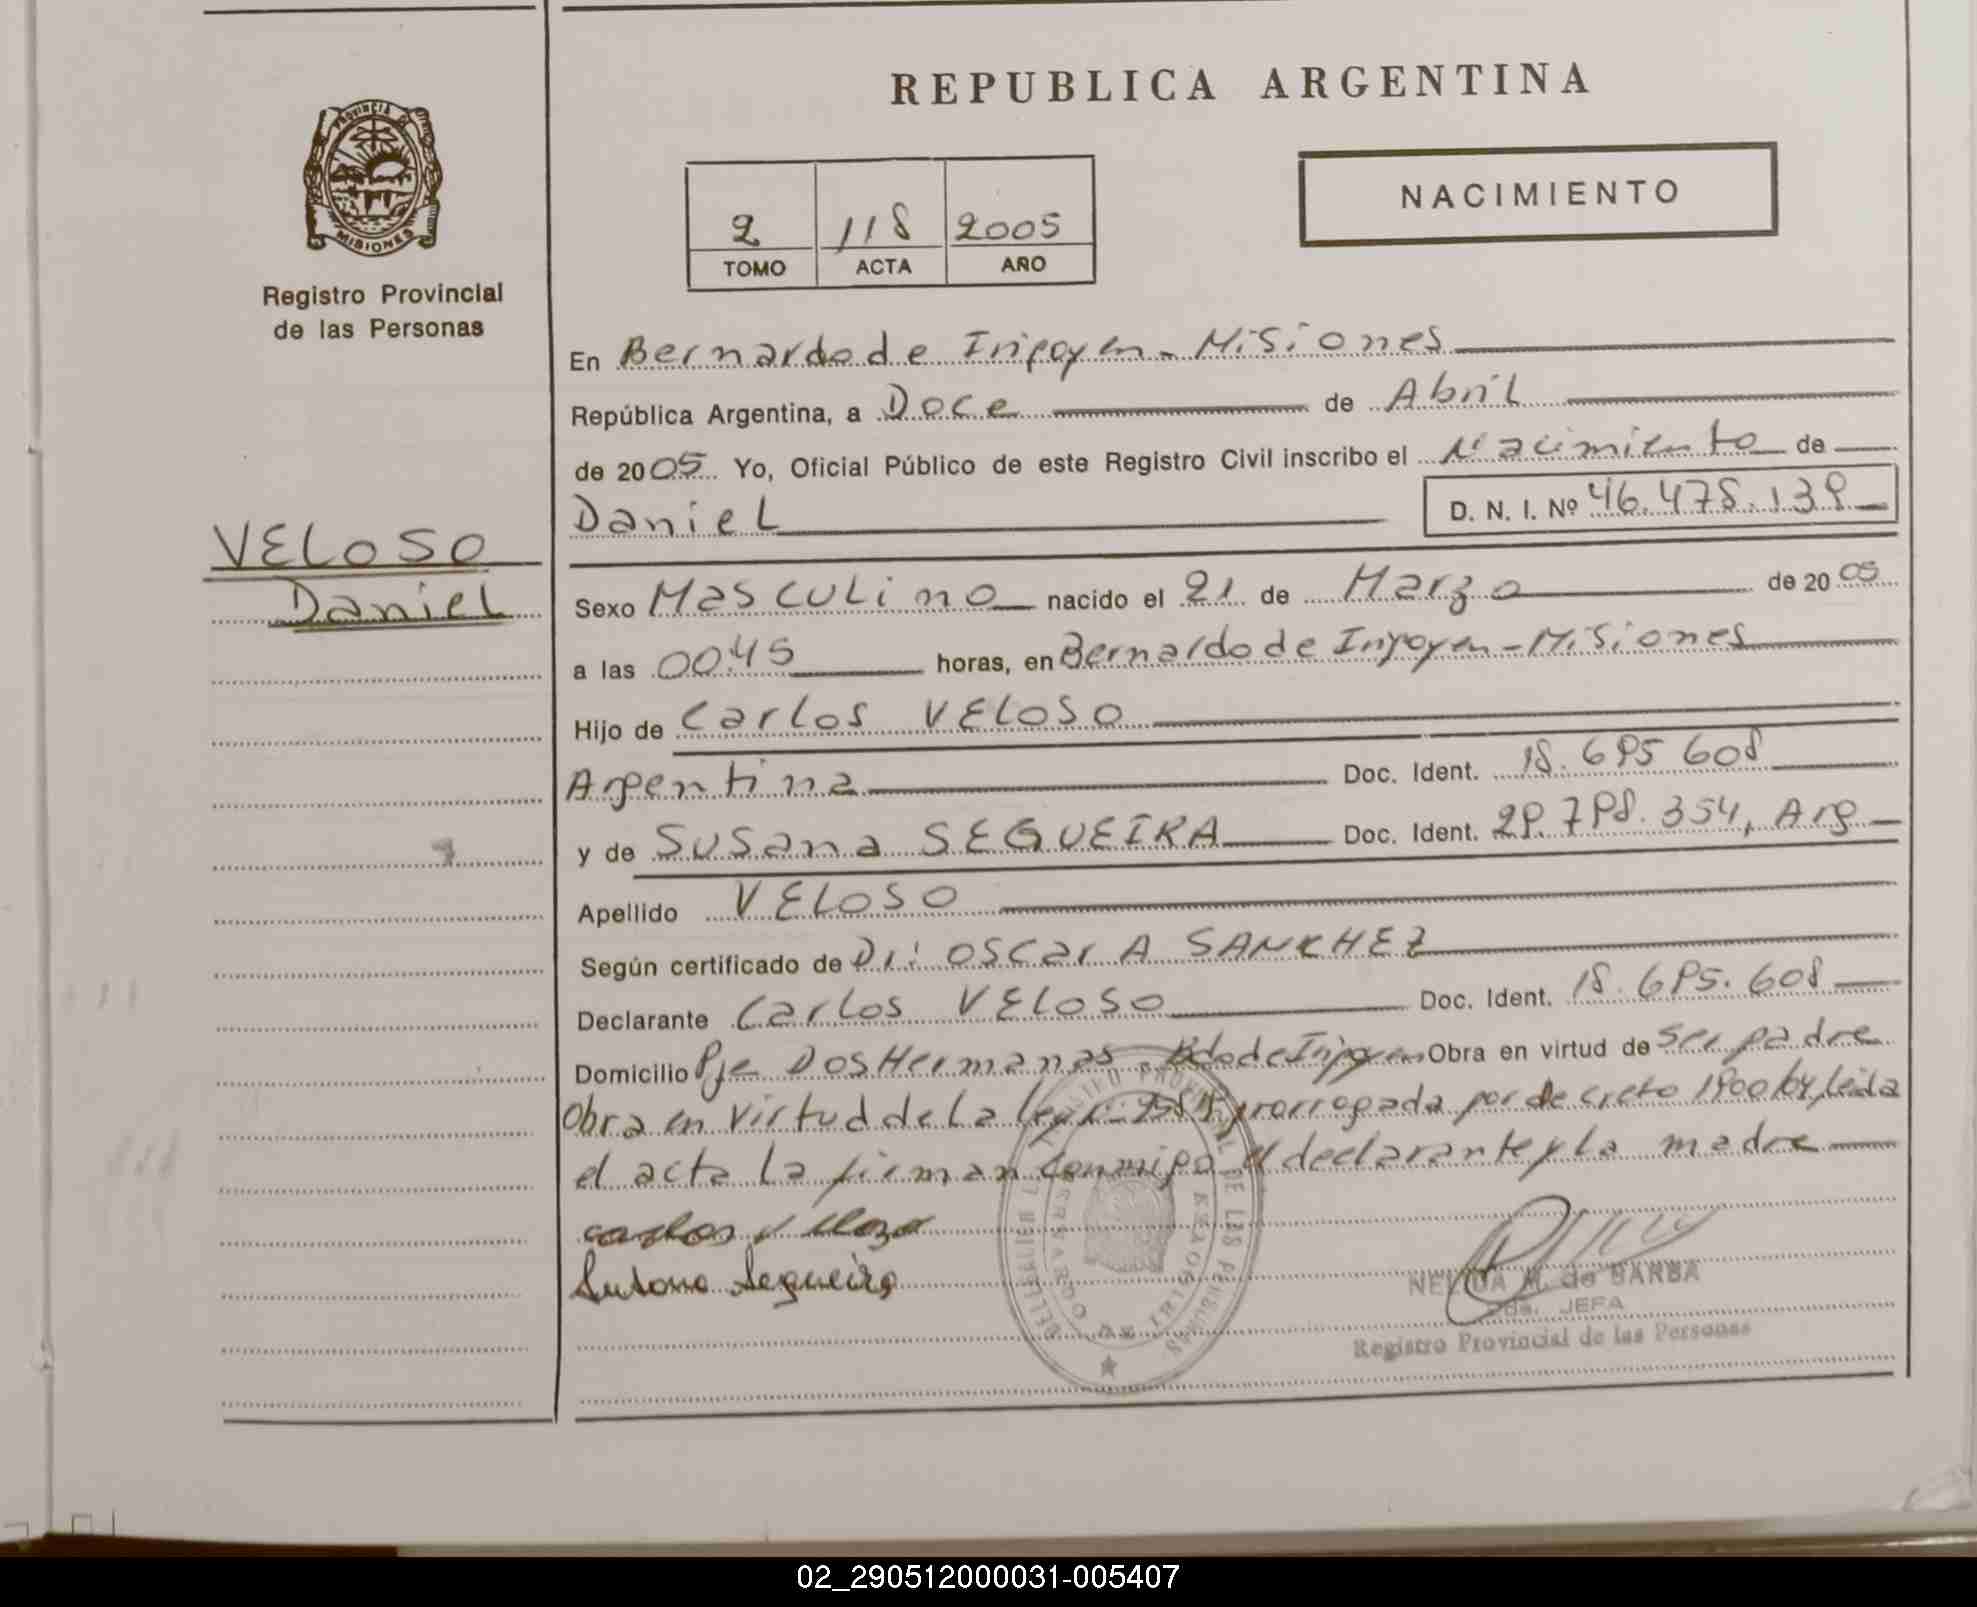 REPUBLICA ARGENTINA
NACIMIENTO
2 118 2005
TOMO ACTA AÑO
PROVINCIA DE
MISIONES
Registro Provincial
de las Personas
VELOSO
Daniel
En Bernardo de Irigoyen - Misiones
República Argentina, a Doce de Abril
de 2005 Yo, Oficial Público de este Registro Civil inscribo el Nacimiento de
Daniel D. N. I. Nº 46.478.139
Sexo Masculino nacido el 21 de Marzo de 2005
a las 00:45 horas, en Bernardo de Irigoyen - Misiones
Hijo de Carlos VELOSO
Argentina Doc. Ident. 18.695.608
y de Susana SEGUEIRA Doc. Ident. 29.798.354, Arg
Apellido VELOSO
Según certificado de Dr: Oscar A SANCHEZ
Declarante Carlos VELOSO Doc. Ident. 18.695.608
Domicilio Pje Dos Hermanas. Bdo de Irigoyen Obra en virtud de ser padre
Obra en virtud de la ley prorrogada por decreto 1900/04, leida
el acta la firman conmigo el declarante y la madre
Carlos Veloso
Susana Segueira
NELIDA M. de BARBA
JEFA
Registro Provincial de las Personas
02_290512000031-005407